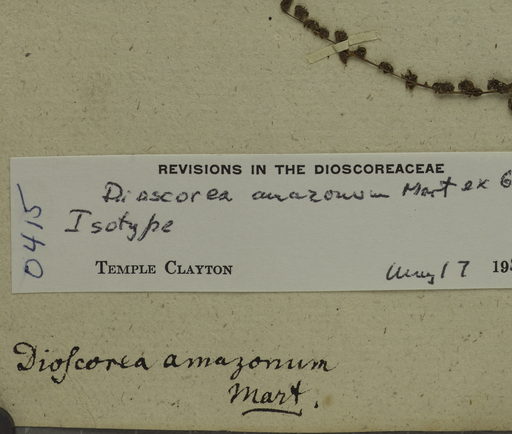 REVISIONS IN THE DIOSCOREACEAE
Dioscorea amazonum Mart ex G
Isotype
0415
TEMPLE CLAYTON
17 193
Dioſcorea amazonum
Mart.